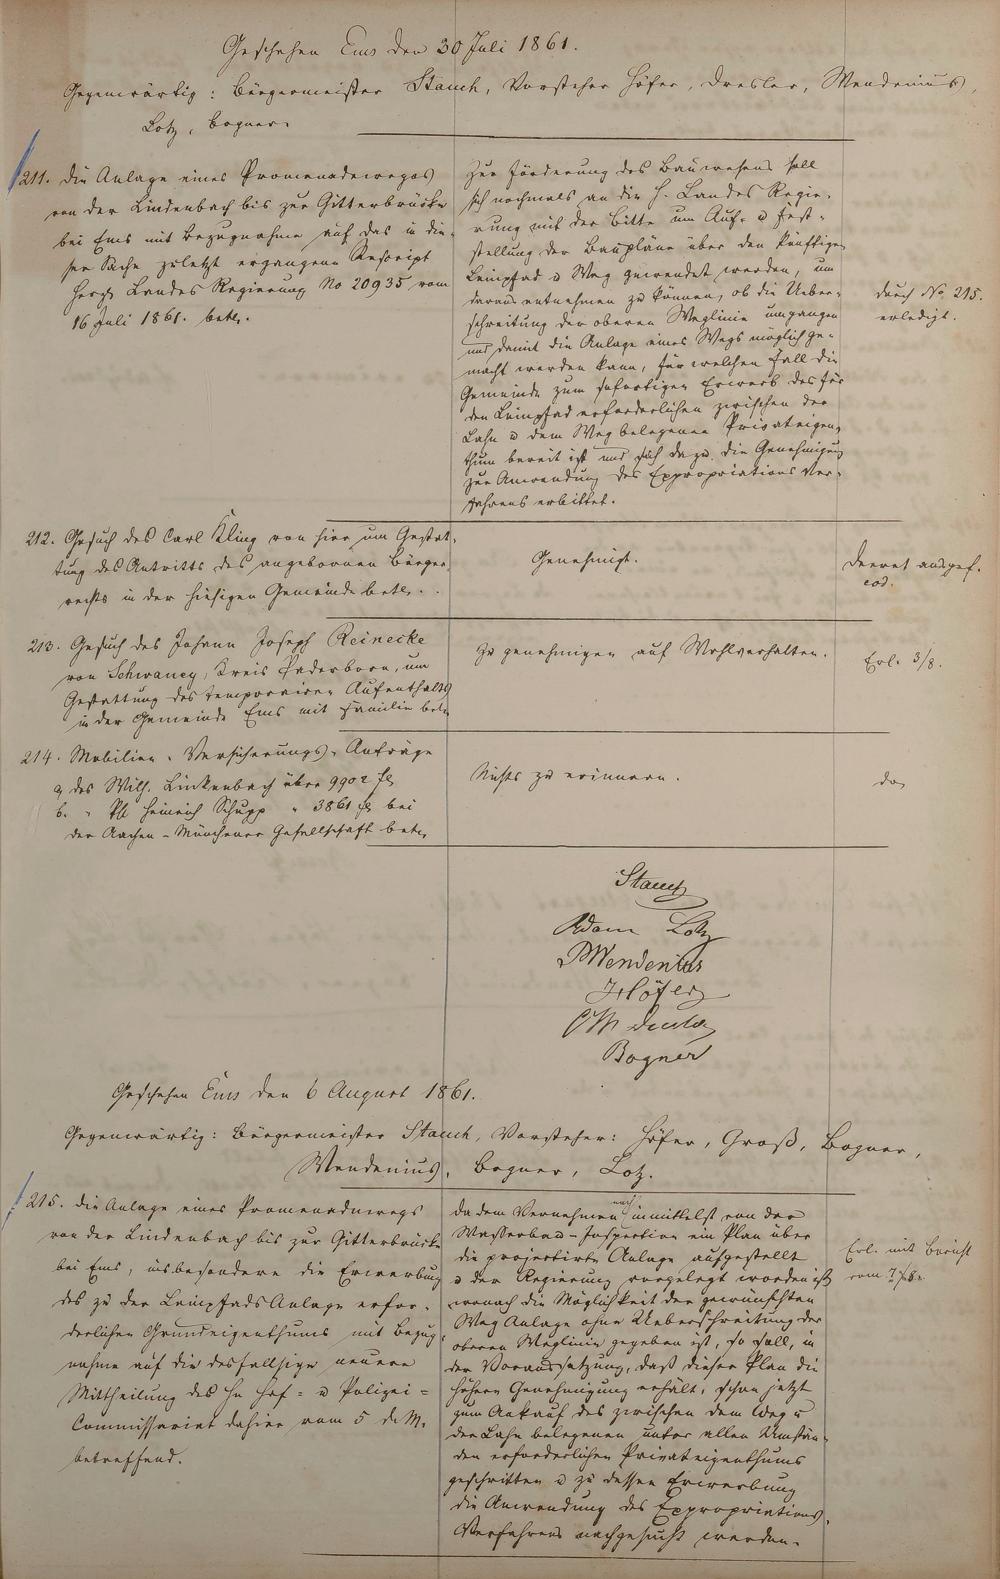 Geschehen Ems den 30 Juli 1861.
Gegenwärtig: Bürgermeister Stauch, Vorsteher Höfer, Dresler, Wendenius,
Lotz, Bogner.
211. Die Anlage eines Promenadeweges
von der Lindenbach bis zur Gitterbrücke
bei Ems mit Bezugnahme auf das in die-
ser Sache zuletzt ergangene Rescript
Herzgl Landes Regierung No 20935 vom
16 Juli 1861. betr.
Zur Förderung des Bauwesens soll
sich nochmals an die H. Landes Regie-
rung mit der Bitte um Auf- u Fest-
stellung der Baupläne über den künftigen
Leinpfad u Weg gewendet werden, um
daraus entnehmen zu können, ob die Ueber-
schreitung der oberen Weglinie umgangen
und damit die Anlage eines Wegs möglich ge-
macht werden kann, für welchen Fall die
Gemeinde zum sofortigen Erwerb des für
den Leinpfad erforderlichen zwischen der
Lahn u dem Weg belegenen Privateigen-
thum bereit ist und sich dazu die Genehmigung
zur Anwendung des Expropriations Ver-
fahrens erbittet.
durch No 215.
erledigt.
212. Gesuch des Carl Kling von hier um Gestat-
tung des Antritts des angebornen Bürger-
rechts in der hiesigen Gemeinde betr.
Genehmigt.
Decret ausgef.
eod.
213. Gesuch des Johann Joseph Reinecke
von Schwaney, Kreis Paderborn, um
Gestattung des temporairen Aufenthalts
in der Gemeinde Ems mit Familie betr
Zu genehmigen auf Wohlverhalten.
Erl. 3/8.
214. Mobilien-Versicherungs-Anträge
a, des Wilh. Linkenbach über 9902 fl
b. " Ph Heinrich Schupp " 3861 fl bei
der Aachen-Münchener Gesellschaft betr,
Nichts zu erinnern.
do
Stauch
Adam Lotz
Wendenius
Höfer
Bogner
Geschehen Ems den 6 August 1861.
Gegenwärtig: Bürgermeister Stauch, Vorsteher: Höfer, Groß, Bogner,
Wendenius, Bogner, Lotz.
215. Die Anlage eines Promenadewegs
von der Lindenbach bis zur Gitterbrücke
bei Ems, insbesondere die Erwerbung
des zu der Leinpfads Anlage erfor-
derlichen Grundeigenthums mit Bezug-
nahme auf die desfallsige neuere
Mittheilung des Hn Hof- u Polizei-
Commissariat dahier vom 5 d. M.
betreffend.
Da dem Vernehmen nach inmittelst von der
Wasserbau-Inspection ein Plan über
die projectirte Anlage aufgestellt
u der Regierung vorgelegt worden ist,
wonach die Möglichkeit der gewünschten
Weg Anlage ohne Ueberschreitung der
oberen Weglinie gegeben ist, so soll, in
der Voraussetzung, daß dieser Plan die
höhere Genehmigung erhält, schon jetzt
zum Ankauf des zwischen dem Weg u
der Lahn belegenen unter allen Umstän-
den erforderlichen Privateigenthums
geschritten u zu dessen Erwerbung
die Anwendung des Expropriations-
Verfahrens nachgesucht werden.
Erl. mit Bericht
vom 7/8.